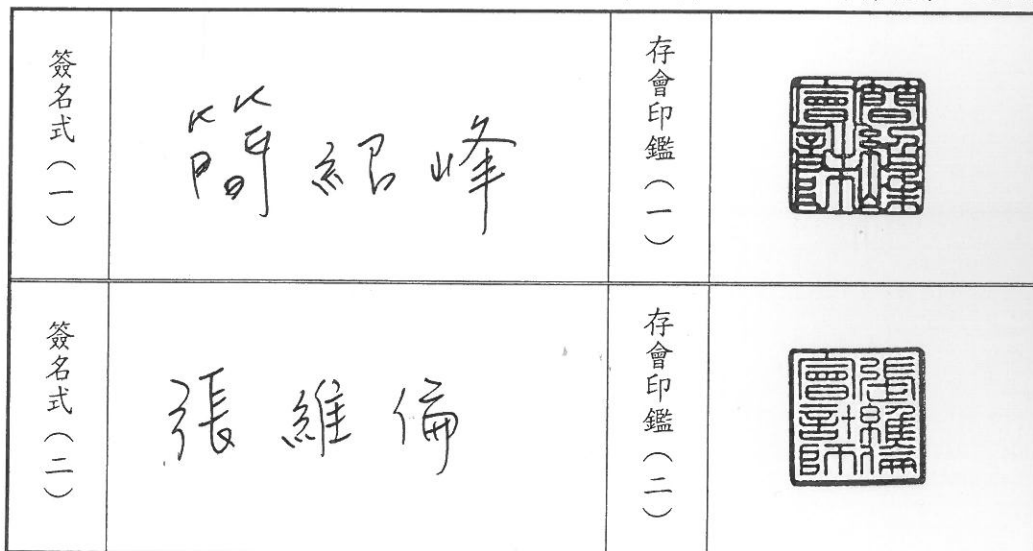 簽名式(一)
簡紹峰
存會印鑑(一)
簡紹峰會計師
簽名式(二)
張維倫
存會印鑑(二)
張維倫會計師